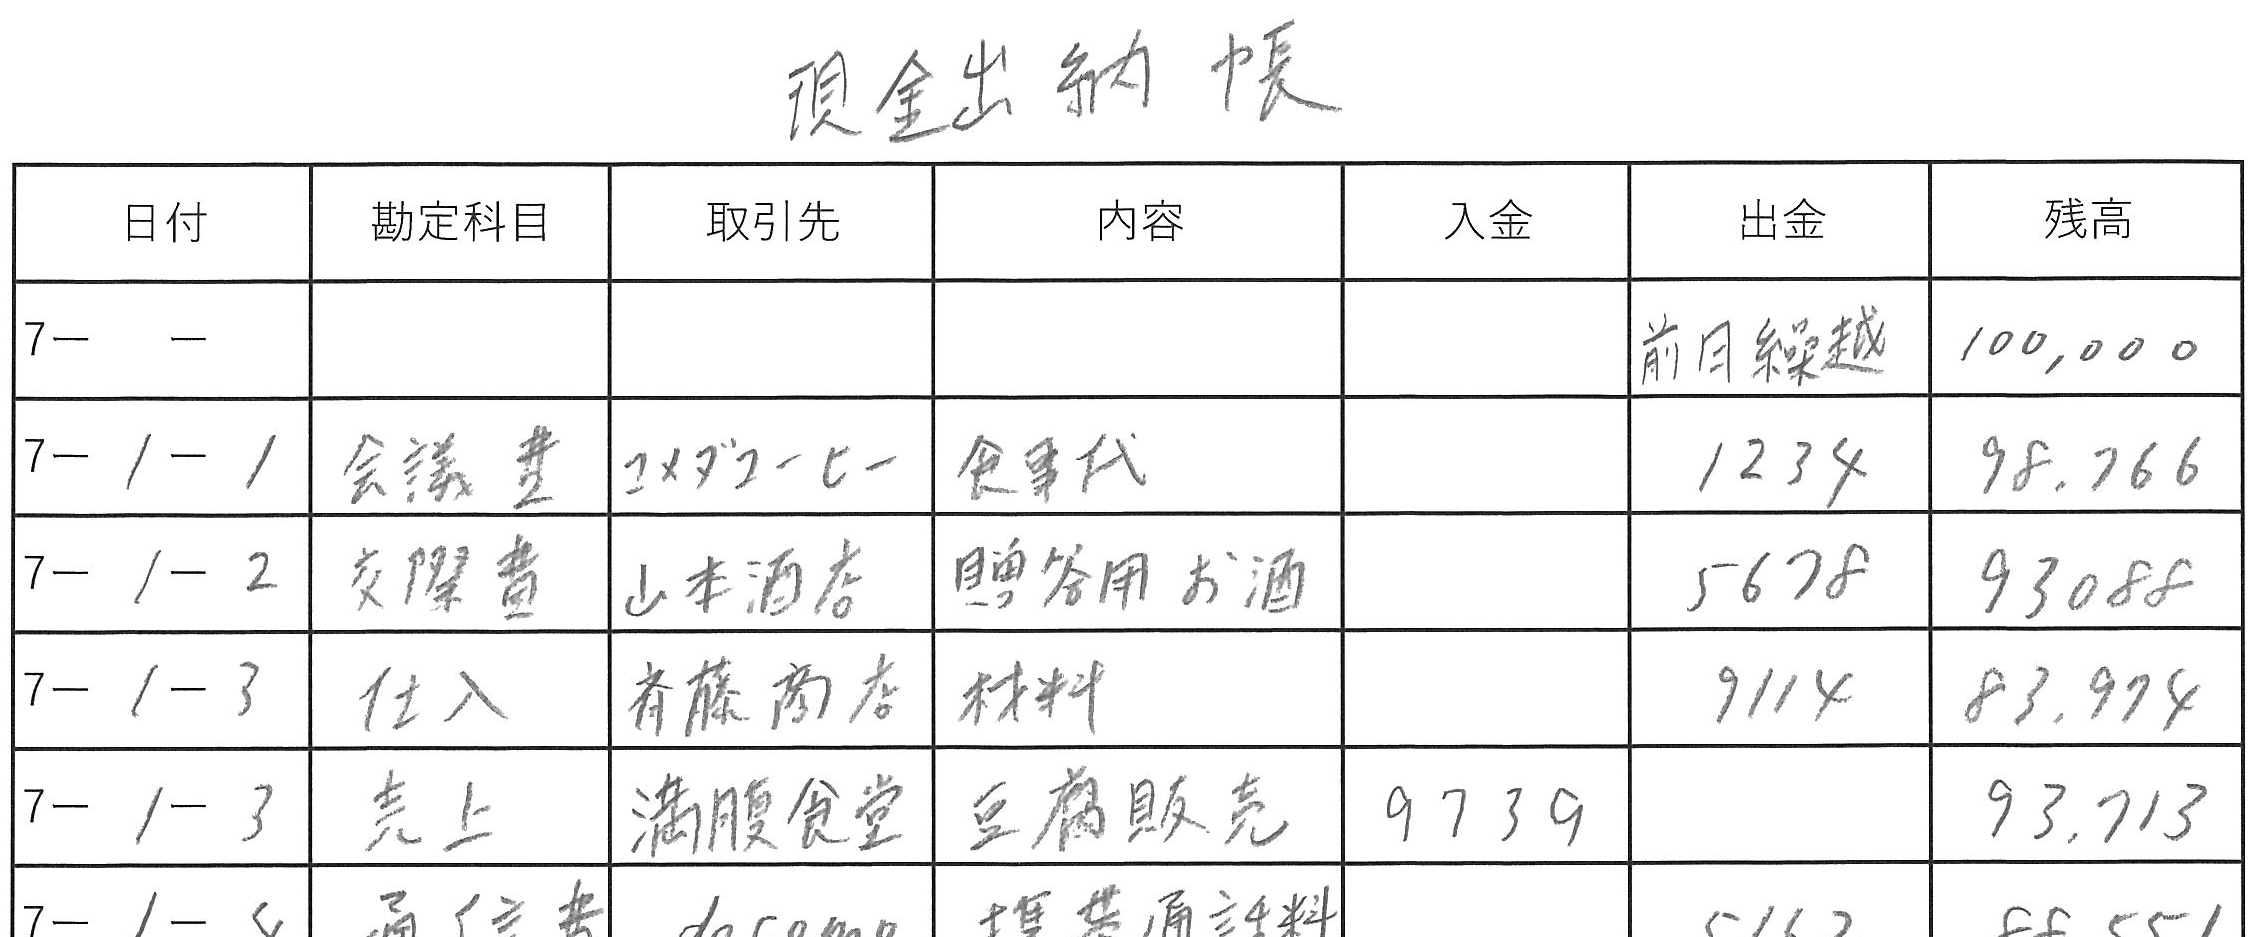 現金出納帳
日付 勘定科目 取引先 内容 入金 出金 残高
7ー ー 前月繰越 100,000
7ー 1ー 1 会議費 コメダコーヒー 食事代 1234 98.766
7ー 1ー 2 交際費 山本酒店 贈答用お酒 5678 93088
7ー 1ー 3 仕入 斉藤商店 材料 9114 83.974
7ー 1ー 3 売上 満腹食堂 豆腐販売 9739 93.713
7ー 1ー 4 通信費 docomo 携帯通話料 5162 88.551